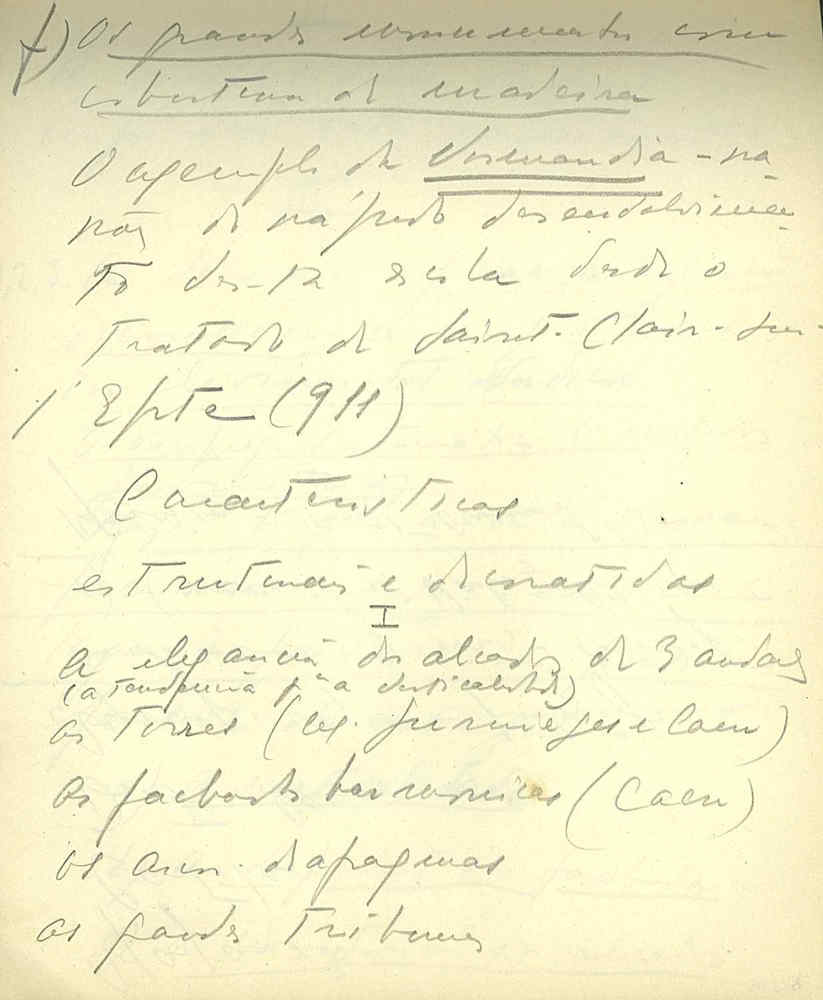 f) Os grandes monumentos com
cobertura de madeira
O exemplo da Normandia - ra-
zões do rápido desenvolvimen-
to des-ta desde o
Tratado de Saint-Clair-sur-
l'Epte (911)
Características
estruturais e decorativas
I
a elegancia dos alçados de 3 andares
(a tendencia pª a verticalidade)
as torres (ex. Jumièges e Caen)
as fachadas harmonicas (Caen)
os arcos diafragmas
as grandes tribunas